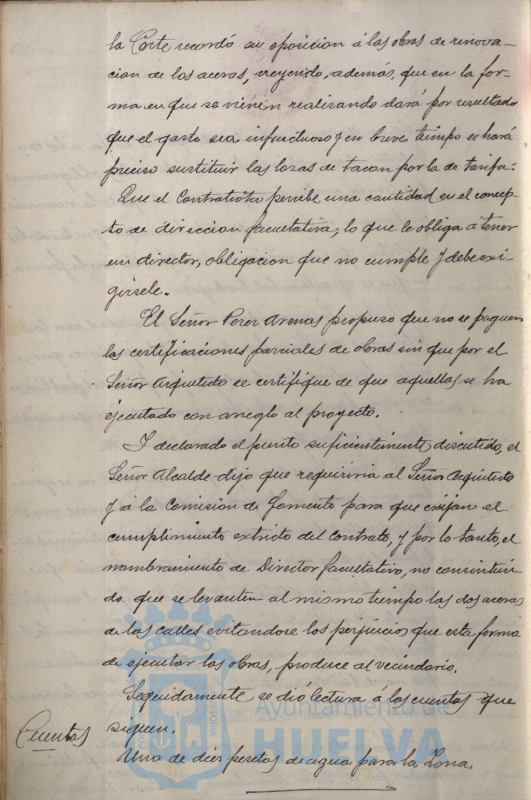 la Corte recordó su oposicion á las obras de renova-
cion de las aceras, creyendo, además, que en la for-
ma en que se vienen realizando dará por resultado
que el gasto sea infructuoso y en breve tiempo se hará
preciso sustituir las losas de tacon por la de tarifa.
Que el Contratista percibe una cantidad en el concep-
to de direccion facultativa, lo que le obliga á tener
un director, obligacion que no cumple y debe exi-
girsele.
El Señor Perez Arenas propuso que no se paguen
las certificaciones parciales de obras sin que por el
Señor Arquitecto se certifique de que aquellas se ha
ejecutado con arreglo al proyecto.
Y declarado el punto suficientemente discutido, el
Señor Alcalde dijo que requiriria al Señor Arquitecto
y á la Comision de Fomento para que exijan el
cumplimiento extricto del Contrato, y por lo tanto, el
nombramiento de Director facultativo, no consintien-
do que se levanten al mismo tiempo las dos aceras
de las calles evitandose los perjuicios que esta forma
de ejecutar las obras, produce al vecindario.
Seguidamente se dió lectura á las cuentas que
Cuentas
siguen.
Una de diez pesetas de agua para la
Ayuntamiento de
HUELVA